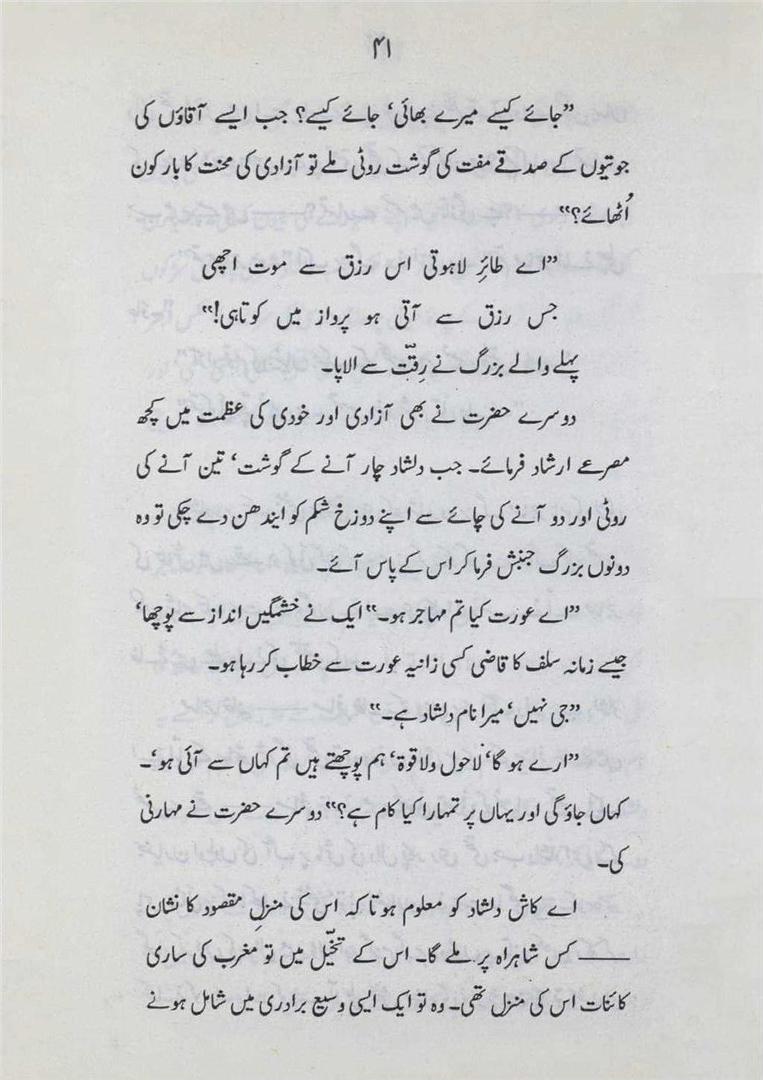 ۴۱
”جائے کیسے میرے بھائی‘ جائے کیسے؟ جب ایسے آقاؤں کی
جوتیوں کے صدقے مفت کی گوشت روٹی ملے تو آزادی کی محنت کا بار کون
اُٹھائے؟“
”اے طائرِ لاہوتی اس رزق سے موت اچھی
جس رزق سے آتی ہو پرواز میں کوتاہی!“
پہلے والے بزرگ نے رِقّت سے الاپا۔
دوسرے حضرت نے بھی آزادی اور خودی کی عظمت میں کچھ
مصرعے ارشاد فرمائے۔ جب دلشاد چار آنے کے گوشت‘ تین آنے کی
روٹی اور دو آنے کی چائے سے اپنے دوزخ شکم کو ایندھن دے چکی تو وہ
دونوں بزرگ جنبش فرما کر اس کے پاس آئے۔
”اے عورت کیا تم مہاجر ہو۔“ ایک نے خشمگیں انداز سے پوچھا‘
جیسے زمانہ سلف کا قاضی کسی زانیہ عورت سے خطاب کر رہا ہو۔
”جی نہیں‘ میرا نام دلشاد ہے۔“
”ارے ہو گا‘ لاحول ولا قوۃ‘ ہم پوچھتے ہیں تم کہاں سے آئی ہو‘۔
کہاں جاؤ گی اور یہاں پر تمہارا کیا کام ہے؟“ دوسرے حضرت نے مہارنی
کی۔
اے کاش دلشاد کو معلوم ہوتا کہ اس کی منزلِ مقصود کا نشان
—— کس شاہراہ پر ملے گا۔ اس کے تخیّل میں تو مغرب کی ساری
کائنات اس کی منزل تھی۔ وہ تو ایک ایسی وسیع برادری میں شامل ہونے